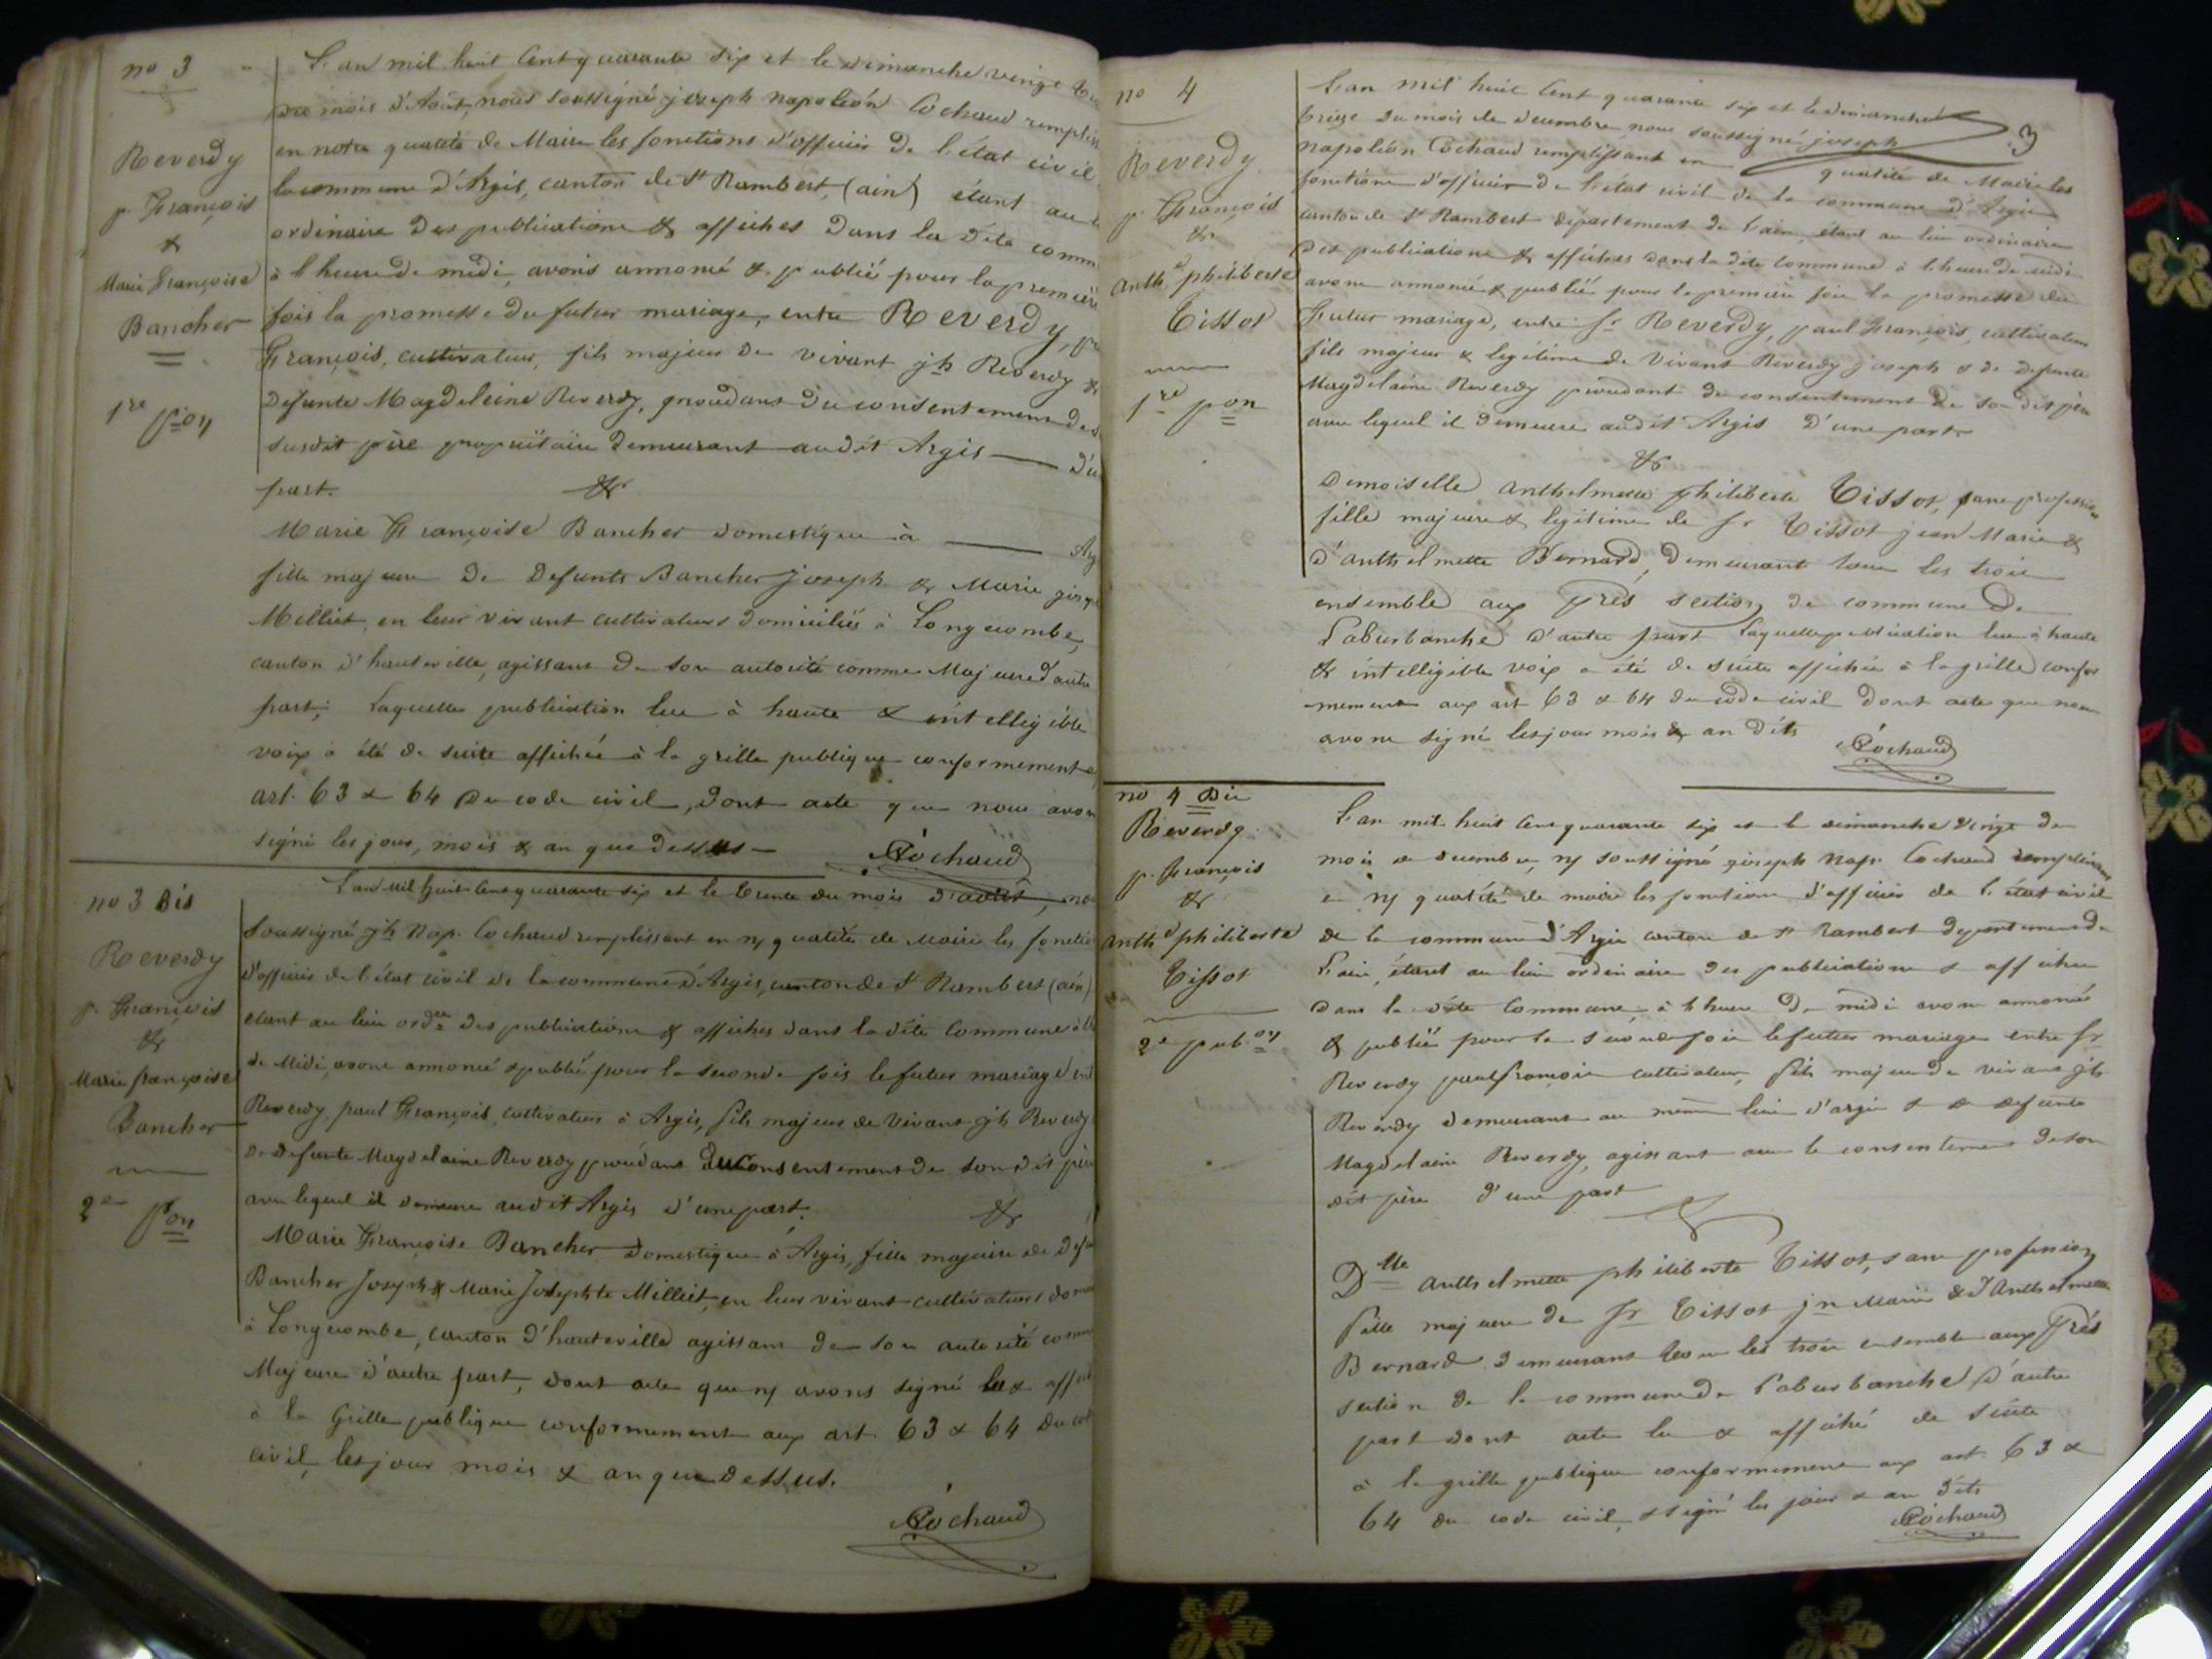 no 3
Reverdy
p. François
&
Marie Françoise
Bancher
1re p.on
L'an mil huit Cent quarante six et le dimanche vingt
du mois d'Août, nous soussigné joseph napoléon Cochaud
en notre qualité de Maire les fonctions d'officier de l'état civil
la commune d'Argis, canton de St Rambert, (ain) étant au
ordinaire des publications & affiches dans la dite
à l'heure de midi, avons annoncé & publié pour la première
fois la promesse du futur mariage, entre Reverdy,
François, cultivateur, fils majeur de vivant jh Reverdy &
defunte Magdeleine Reverdy, procedant du consentement de
susdit père propriétaire demeurant audit Argis —
part. &
Marie Françoise Bancher domestique à —
fille majeure de defunts Bancher Joseph & Marie
Milliet, en leur vivant cultivateurs domiciliés à Longecombe,
canton d'hauteville, agissant de son autorité comme Majeure d'autre
part; Laquelle publication lue à haute & intelligible
voix a été de suite affichée à la grille publique conformement
art. 63 & 64 du code civil, dont acte que nous
signé les jour, mois & an que dessus —
Cochaud
no 3 Bis
Reverdy
p. François
&
Marie françoise
Bancher
2e p.on
L'an mil huit Cent quarante six et le trente du mois d'août,
Soussigné jh Nap. Cochaud remplissant en n/ qualité de Maire les
d'officier de l'état civil de la commune d'Argis, canton de St Rambert (ain)
étant au lieu ordre des publications & affiches dans la dite Commune
de Midi, avons annoncé & publié pour la seconde fois le futur mariage
Reverdy, paul François, cultivateur à Argis, fils majeur de vivant jh Reverdy
de defunte Magdelaine Reverdy procedant du Consentement de son dit père
avec lequel il demeure audit Argis d'une part. &
Marie Françoise Bancher domestique à Argis, fille majeure de
Bancher Joseph & Marie Josephte Milliet, en leur vivant cultivateurs
à Longecombe, canton d'hauteville agissant de son autorité
Majeure d'autre part, dont acte que n/ avons signé lu &
à la Grille publique conformement aux art. 63 & 64 du
civil, les jour mois & an que dessus.
Cochaud
3
no 4
Reverdy
p. François
&
Anth. philiberte
Tissot
1re p.on
L'an mil huit Cent quarante six et le dimanche
treize du mois de decembre, nous soussigné joseph
napoléon Cochaud remplissant en qualité de Maire les
fonctions d'officier de l'état civil de la commune d'Argis
canton de St Rambert département de l'ain, étant au lieu ordinaire
des publications & affiches dans la dite Commune à l'heure de midi
avons annoncé & publié pour la première fois la promesse du
futur mariage, entre Sr Reverdy, paul François, cultivateur
fils majeur & legitime de vivant Reverdy joseph & de defunte
Magdelaine Reverdy procedant du consentement de son dit père
avec lequel il demeure audit Argis d'une part
&
Demoiselle anthelmette philiberte Tissot, sans profession
fille majeure & legitime de Sr Tissot jean Marie &
d'anthelmette Bernard, demeurant tous les trois
ensemble aux Près section de commune de
Laburbanche d'autre part Laquelle publication lue à haute
& intelligible voix a été de suite affichée à la grille confor
mement aux art 63 & 64 du code civil dont acte que nous
avons signé les jour mois & an dits
Cochaud
no 4 Bis
Reverdy
p. François
&
Anth. philiberte
Tissot
2e pub.on
L'an mil huit Cent quarante six et le dimanche vingt du
mois de decembre, n/ soussigné joseph Nap. Cochaud remplissant
en n/ qualité de maire les fonctions d'officier de l'état civil
de la commune d'Argis canton de St Rambert departement de
L'ain, étant au lieu ordinaire des publications & affiches
dans la dite Commune, à l'heure de midi avons annoncé
& publié pour la seconde fois le futur mariage entre Sr
Reverdy paul françois cultivateur, fils majeur de vivant jh
Reverdy demeurant au même lieu d'argis & de defunte
Magdelaine Reverdy, agissant avec le consentement de son
dit père d'une part
&
Dlle anthelmette philiberte Tissot, sans profession
fille majeure de Sr Tissot jn Marie & d'Anthelmette
Bernard demeurant tous les trois ensemble aux Près
section de la commune de Laburbanche d'autre
part dont acte lu & affiché de suite
à la grille publique conformement aux art. 63 &
64 du code civil, & signé les jour & an dits
Cochaud